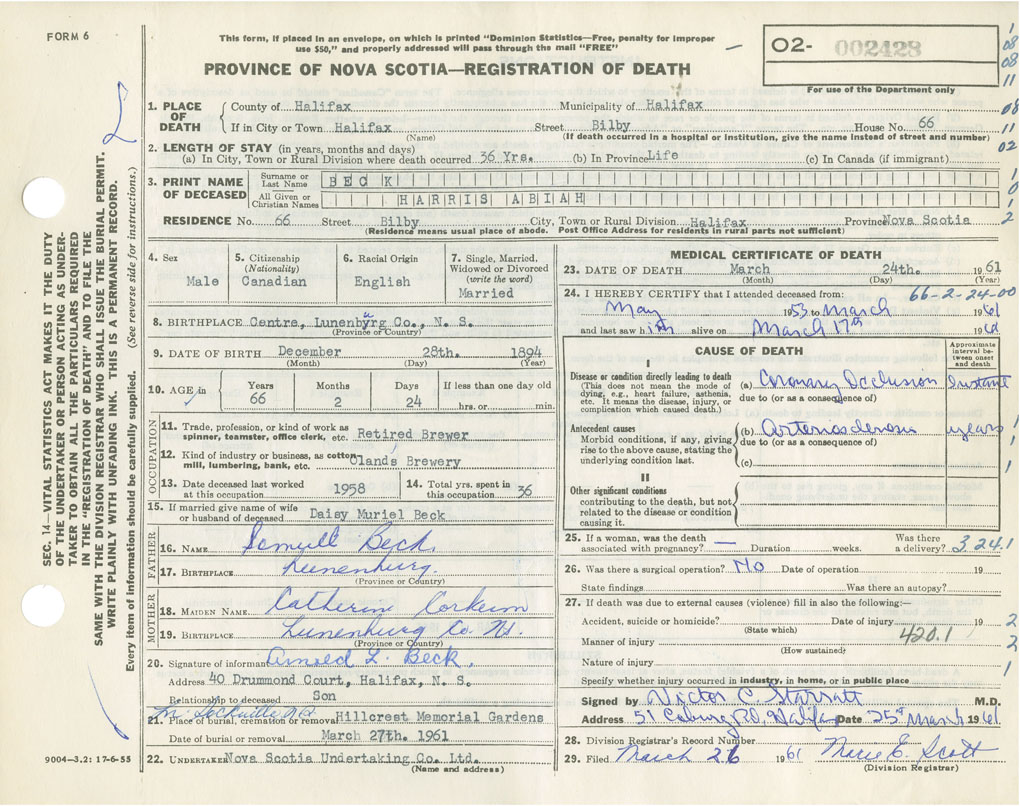 FORM 6
This form, if placed in an envelope, on which is printed "Dominion Statistics—Free, penalty for improper
use $50," and properly addressed will pass through the mail "FREE"
O2- 002428
For use of the Department only
PROVINCE OF NOVA SCOTIA—REGISTRATION OF DEATH
1. PLACE OF DEATH
County of Halifax Municipality of Halifax
If in City or Town Halifax Street Bilby House No. 66
(Name) (If death occurred in a hospital or institution, give the name instead of street and number)
2. LENGTH OF STAY (in years, months and days)
(a) In City, Town or Rural Division where death occurred 36 Yrs. (b) In Province Life (c) In Canada (if immigrant)
3. PRINT NAME OF DECEASED
Surname or Last Name BECK
All Given or Christian Names HARRIS ABIAH
RESIDENCE No. 66 Street Bilby City, Town or Rural Division Halifax Province Nova Scotia
(Residence means usual place of abode. Post Office Address for residents in rural parts not sufficient)
4. Sex
Male
5. Citizenship
(Nationality)
Canadian
6. Racial Origin
English
7. Single, Married,
Widowed or Divorced
(write the word)
Married
8. BIRTHPLACE Centre, Lunenburg Co., N. S.
(Province or Country)
9. DATE OF BIRTH December 28th. 1894
(Month) (Day) (Year)
10. AGE in
Years Months Days If less than one day old
66 2 24 hrs. or min.
OCCUPATION
11. Trade, profession, or kind of work as
spinner, teamster, office clerk, etc. Retired Brewer
12. Kind of industry or business, as cotton
mill, lumbering, bank, etc. Olands Brewery
13. Date deceased last worked
at this occupation 1958
14. Total yrs. spent in
this occupation 36
15. If married give name of wife
or husband of deceased Daisy Muriel Beck
FATHER
16. NAME Samuell Beck.
17. BIRTHPLACE Lunenburg.
(Province or Country)
MOTHER
18. MAIDEN NAME Catherin Corkum
19. BIRTHPLACE Lunenburg Co. NS.
(Province or Country)
20. Signature of informant Arnold L. Beck.
Address 40 Drummond Court, Halifax, N. S.
Relationship to deceased Son
21. Place of burial, cremation or removal Hillcrest Memorial Gardens
Date of burial or removal March 27th. 1961
22. UNDERTAKER Nova Scotia Undertaking Co. Ltd.
(Name and address)
MEDICAL CERTIFICATE OF DEATH
23. DATE OF DEATH March 24th. 1961
(Month) (Day)
24. I HEREBY CERTIFY that I attended deceased from: 66-2-24-00
May 1953 to March 1961
and last saw him alive on March 17th 1961
CAUSE OF DEATH
Approximate interval between onset and death
I
Disease or condition directly leading to death
(This does not mean the mode of
dying, e.g., heart failure, asthenia,
etc. It means the disease, injury, or
complication which caused death.)
(a) Coronary Occlusion Instant
due to (or as a consequence of)
Antecedent causes
Morbid conditions, if any, giving
rise to the above cause, stating the
underlying condition last.
(b) Arteriosclerosis years
due to (or as a consequence of)
(c)
II
Other significant conditions
contributing to the death, but not
related to the disease or condition
causing it.
25. If a woman, was the death
associated with pregnancy? — Duration weeks. Was there
a delivery? 3.24.1
26. Was there a surgical operation? No Date of operation 19
State findings Was there an autopsy?
27. If death was due to external causes (violence) fill in also the following:—
Accident, suicide or homicide? Date of injury 19
(State which)
Manner of injury 420.1
(How sustained)
Nature of injury
Specify whether injury occurred in industry, in home, or in public place
Signed by Victor C. Starratt M.D.
Address 51 Coburg Rd, Halifax Date 25th March 1961
28. Division Registrar's Record Number
29. Filed March 26 1961 Marie E. Scott
(Division Registrar)
SEC. 14—VITAL STATISTICS ACT MAKES IT THE DUTY
OF THE UNDERTAKER OR PERSON ACTING AS UNDER-
TAKER TO OBTAIN ALL THE PARTICULARS REQUIRED
IN THE "REGISTRATION OF DEATH" AND TO FILE THE
SAME WITH THE DIVISION REGISTRAR WHO SHALL ISSUE THE BURIAL PERMIT.
WRITE PLAINLY WITH UNFADING INK. THIS IS A PERMANENT RECORD.
Every item of information should be carefully supplied. (See reverse side for instructions.)
9004—3.2: 17-6-55
1
08
08
11
08
11
02
1
0
1
2
1
1
1
2
2
1